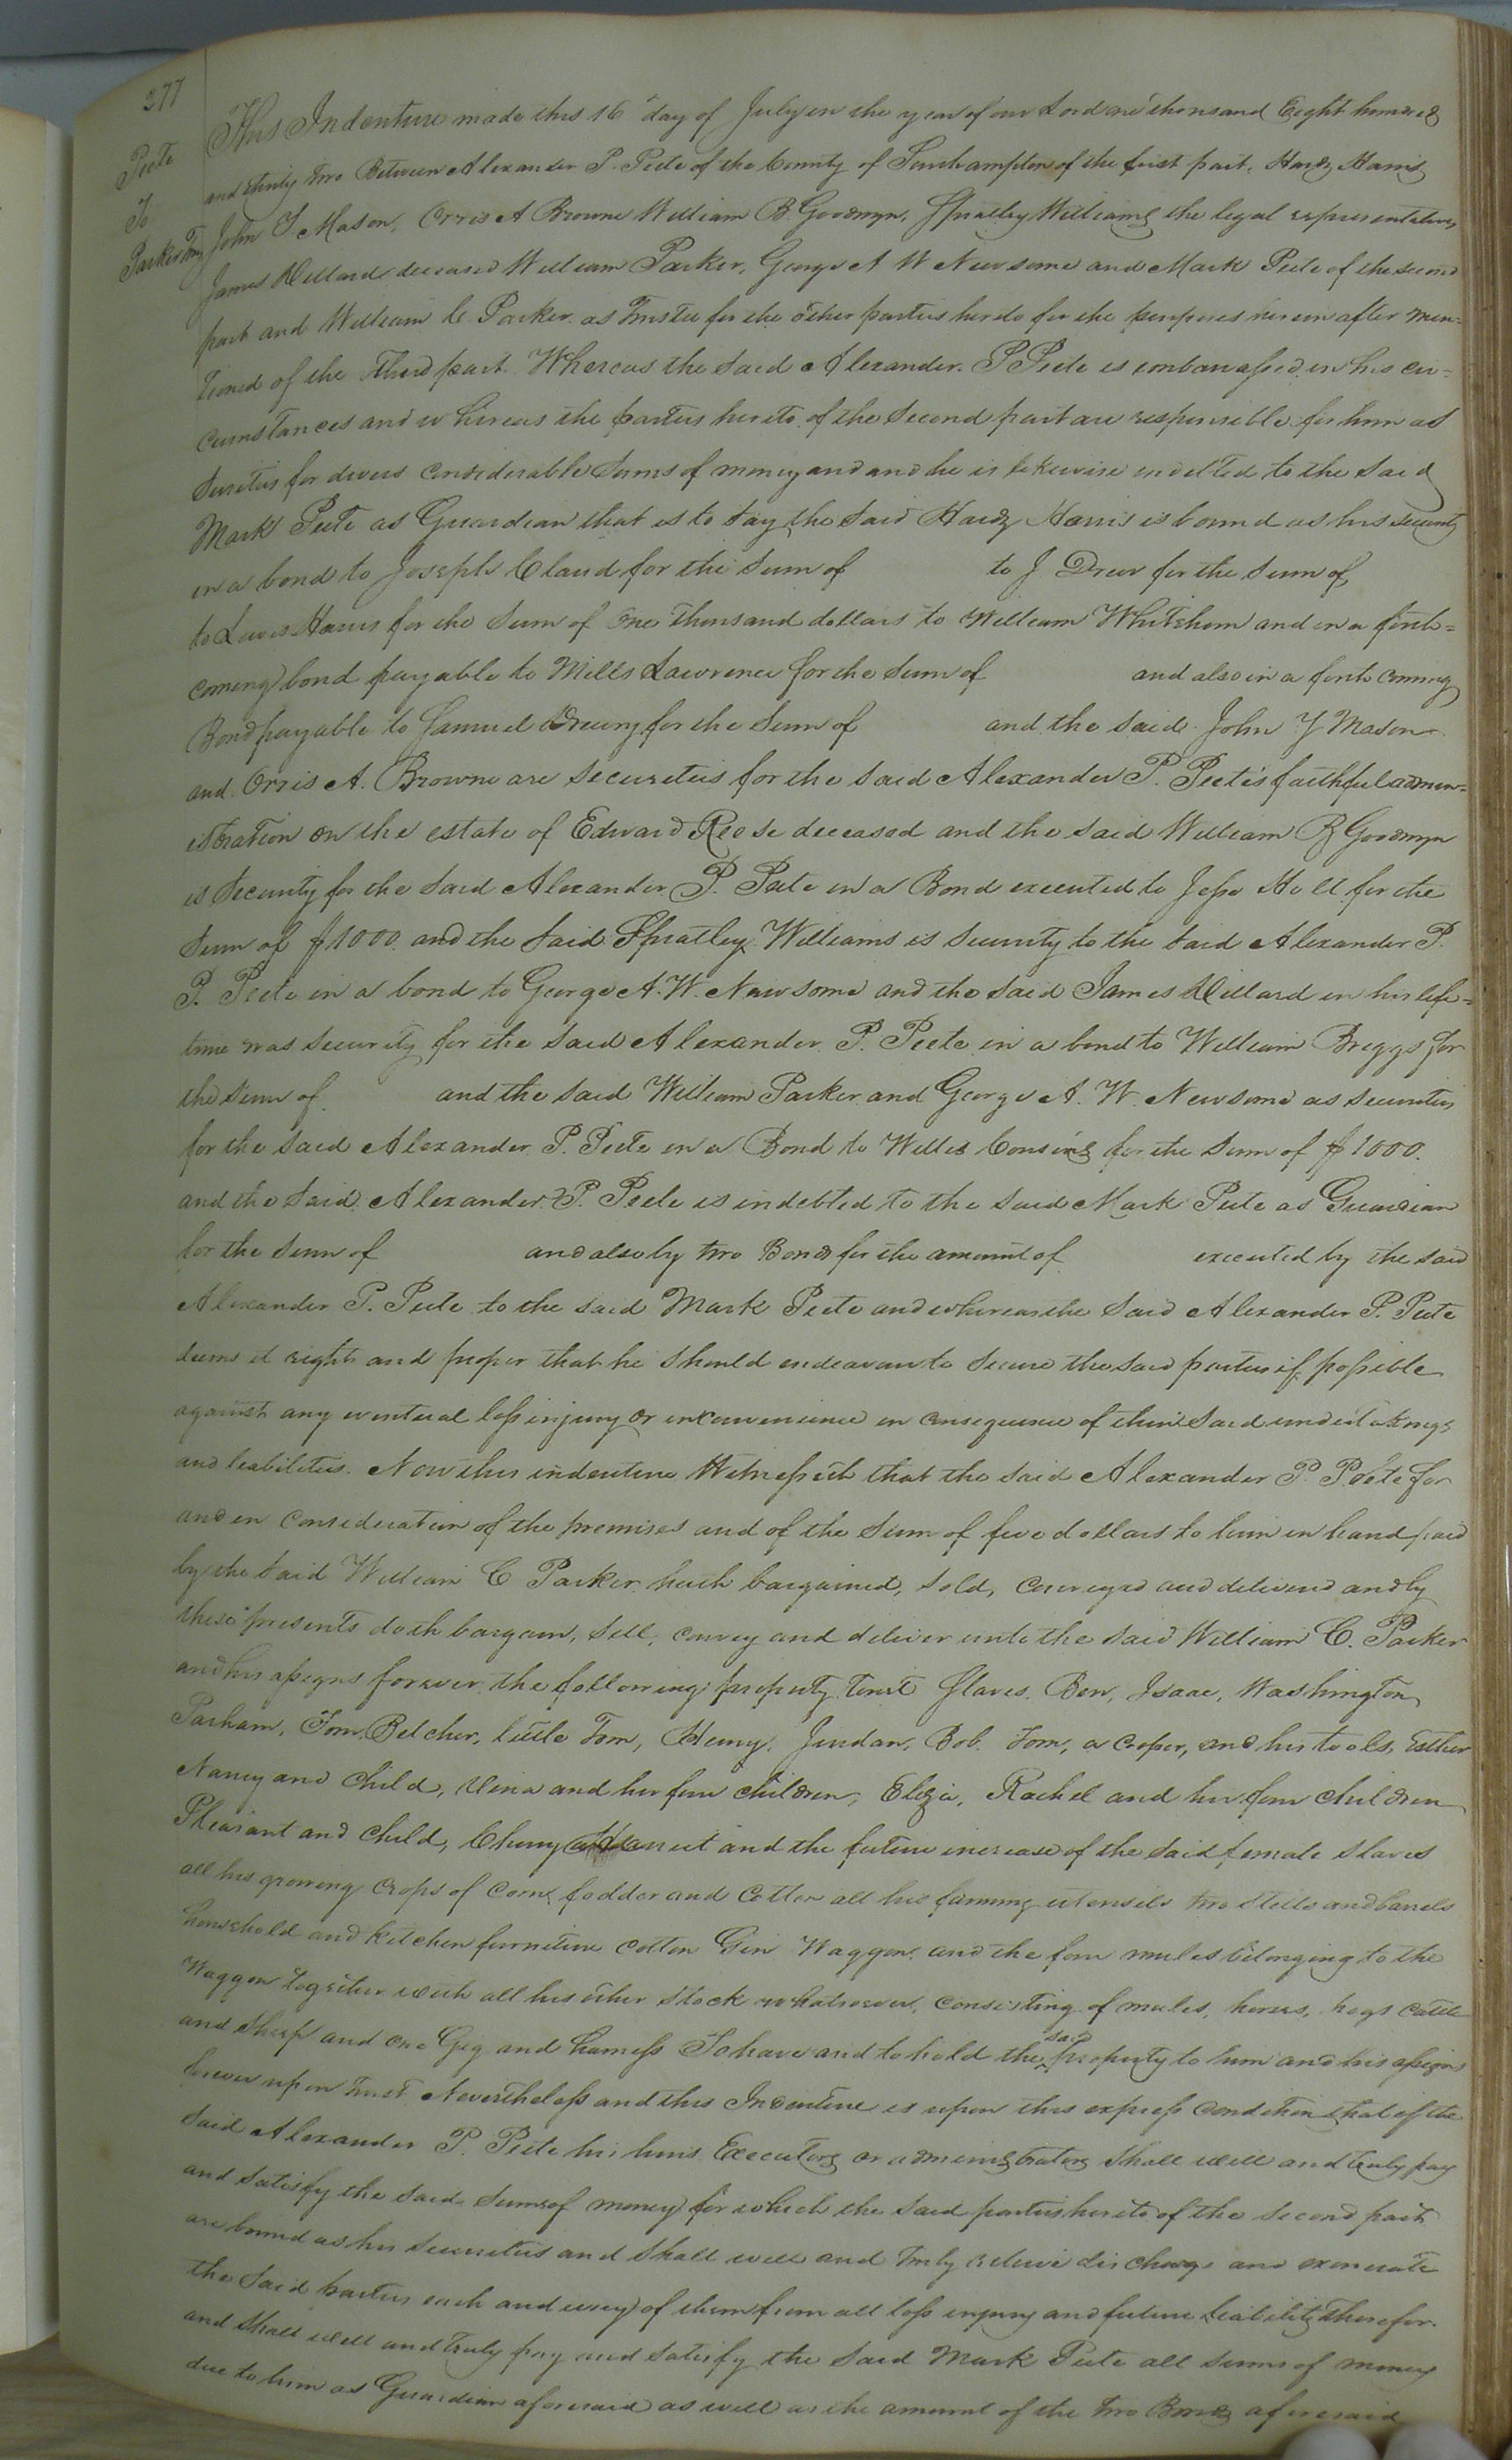 277
Peete
To
Parker Trus
This Indenture made this 16th day of July in the year of our Lord one thousand Eight hundred
and thirty two Between Alexander P. Peete of the County of Southampton of the first part, Hardy Harris
John Y Mason, Orris A Browne William B. Goodwyn, Spratley Williams the legal representatives
James Dillard deceased William Parker, George A W Newsome and Mark Peete of the second
part and William C. Parker as Trustee for the other parties hereto for the purposes herein after men=
tioned of the Third part. Whereas the said Alexander P Peete is embarrassed in his cir=
cumstances and whereas the parties hereto of the Second part are responsible for him as
Sureties for divers considerable Sums of money and and he is likewise indebted to the Said
Mark Peete as Guardian that is to Say, the Said Hardy Harris is bound as his security
in a bond to Joseph Claud for the Sum of to J Drew for the Sum of
to Lewis Harris for the Sum of one thousand dollars to William Whitehorn and in a forth=
coming bond payable to Mills Lawrence for the Sum of and also in a forth coming
Bond payable to Samuel Drewry for the Sum of and the Said John Y Mason
and Orris A. Browne are Securities for the Said Alexander P. Peete's faithful admin=
istration on the estate of Edward Reese deceased and the Said William B Goodwyn
is Security for the Said Alexander P. Peete in a Bond executed to Jesse Holt for the
Sum of $1000. and the Said Spratley Williams is Security to the Said Alexander P.
P. Peete in a bond to George A. W. Newsome and the Said James Dillard in his life=
time was Security for the Said Alexander P. Peete in a bond to William Briggs for
the Sum of and the Said William Parker and George A. W. Newsome as Securities
for the Said Alexander P. Peete in a Bond to Willis Cousins for the Sum of $1000.
and the Said Alexander P. Peete is indebted to the Said Mark Peete as Guardian
for the Sum of and also by two Bonds for the amount of executed by the Said
Alexander P. Peete to the Said Mark Peete and whereas the Said Alexander P. Peete
deems it right and proper that he Should endeavour to Secure the Said parties if possible
against any eventual loss injury or inconvenience in consequence of their Said undertakings
and liabilities. Now this indenture Witnesseth that the Said Alexander P. Peete for
and in Consideration of the premises and of the Sum of five dollars to him in hand paid
by the Said William C Parker hath bargained, Sold, Conveyed and delivered and by
these presents doth bargain, Sell, convey and deliver unto the Said William C. Parker
and his assigns forever the following property towit Slaves. Ben, Isaac, Washington,
Parham, Tom, Belcher, little Tom, Henry, Jordan, Bob. Tom, a Cooper, and his tools, Esther
Nancy and Child, Vina and her four children, Eliza, Rachel and her four children
Pleasant and child, Cherry Harriet and the future increase of the said female Slaves
all his growing Crops of Corn, fodder and Cotton all his farming utensils two Stills and barrels
household and Kitchen furniture Cotton Gin Waggon, and the four mules belonging to the
Waggon together with all his other Stock whatsoever, Consisting of mules, horses, hogs Cattle
and Sheep and one Gig and harness To have and to hold the said property to him and his assigns
forever upon trust Nevertheless and this Indenture is upon this express Condition that if the
Said Alexander P. Peete his heirs Executors or administrators Shall well and truly pay
and Satisfy the Said Sums of money for which the Said parties hereto of the Second part
are bound as his Securities and Shall well and truly relieve discharge and exonerate
the Said parties each and every of them from all loss injury and future liability therefor.
and Shall well and truly pay and Satisfy the Said Mark Peete all Sums of money
due to him as Guardian aforesaid as well as the amount of the two Bonds aforesaid